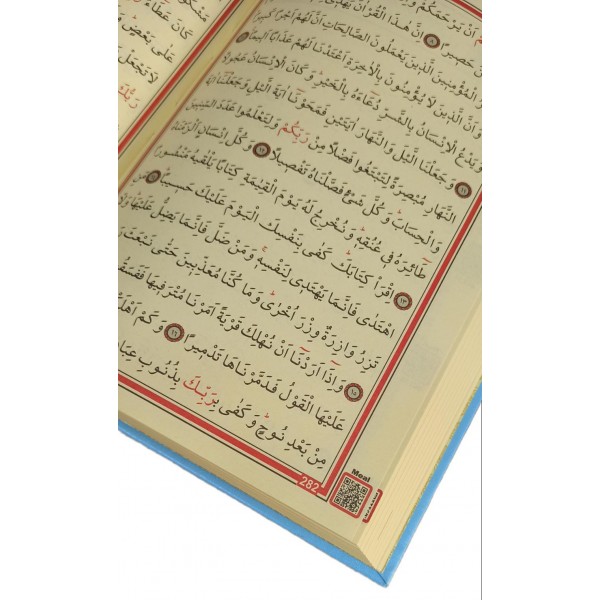 اَنْ يَرْحَمَكُمْ
حَص۪يرًا ﴿٨﴾ اِنَّ هٰذَا الْقُرْاٰنَ يَهْد۪ي
الْمُؤْمِن۪ينَ الَّذ۪ينَ يَعْمَلُونَ الصَّالِحَاتِ اَنَّ لَهُمْ اَجْرًا كَب۪يرًا
وَاَنَّ الَّذ۪ينَ لَا يُؤْمِنُونَ بِالْاٰخِرَةِ اَعْتَدْنَا لَهُمْ عَذَابًا اَل۪يمًا
وَيَدْعُ الْاِنْسَانُ بِالشَّرِّ دُعَٓاءَهُ بِالْخَيْرِۜ وَكَانَ الْاِنْسَانُ عَجُولًا
﴿١١﴾ وَجَعَلْنَا الَّيْلَ وَالنَّهَارَ اٰيَتَيْنِ فَمَحَوْنَٓا اٰيَةَ الَّيْلِ وَجَعَلْنَٓا اٰيَةَ
النَّهَارِ مُبْصِرَةً لِتَبْتَغُوا فَضْلًا مِنْ رَبِّكُمْ وَلِتَعْلَمُوا عَدَدَ السِّن۪ينَ
وَالْحِسَابَۜ وَكُلَّ شَيْءٍ فَصَّلْنَاهُ تَفْص۪يلًا ﴿١٢﴾ وَكُلَّ اِنْسَانٍ اَلْزَمْنَاهُ
طَٓائِرَهُ ف۪ي عُنُقِه۪ۜ وَنُخْرِجُ لَهُ يَوْمَ الْقِيٰمَةِ كِتَابًا يَلْقٰيهُ مَنْشُورًا
﴿١٣﴾ اِقْرَأْ كِتَابَكَۜ كَفٰى بِنَفْسِكَ الْيَوْمَ عَلَيْكَ حَس۪يبًا ﴿١٤﴾
اهْتَدٰى فَاِنَّمَا يَهْتَد۪ي لِنَفْسِه۪ۚ وَمَنْ ضَلَّ فَاِنَّمَا يَضِلُّ عَلَيْهَاۜ وَلَا
تَزِرُ وَازِرَةٌ وِزْرَ اُخْرٰىۜ وَمَا كُنَّا مُعَذِّب۪ينَ حَتّٰى نَبْعَثَ
﴿١٥﴾ وَاِذَٓا اَرَدْنَٓا اَنْ نُهْلِكَ قَرْيَةً اَمَرْنَا مُتْرَف۪يهَا فَفَسَقُ
عَلَيْهَا الْقَوْلُ فَدَمَّرْنَاهَا تَدْم۪يرًا ﴿١٦﴾ وَكَمْ اَهْلَ
مِنْ بَعْدِ نُوحٍۜ وَكَفٰى بِرَبِّكَ بِذُنُوبِ عِبَا
282
Meal
كَانَ عَطَٓاءُ
عَلٰى بَعْضٍۜ
لَا تَجْعَلْ